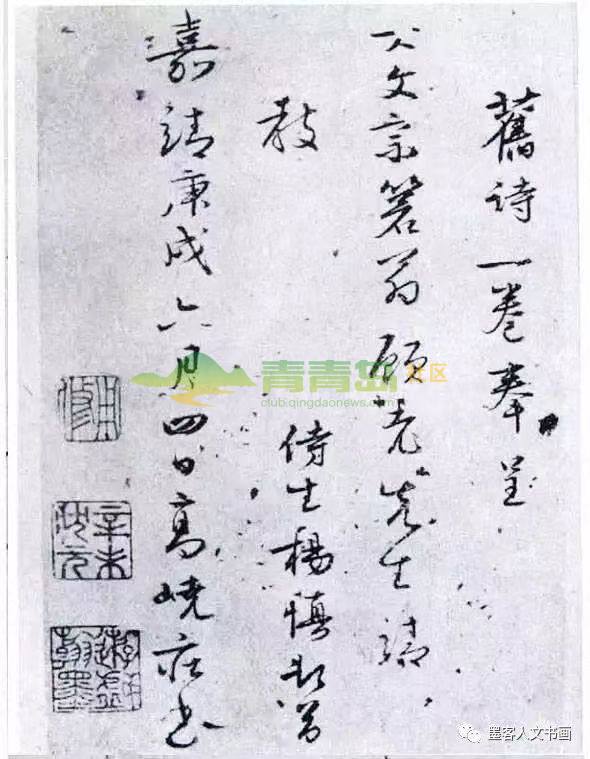 舊詩一卷奉呈
大文宗箬翁顧老先生請
教
侍生楊慎頓首
嘉靖庚戌六月四日高嶢莊書
用修
辛未狀元
青青岛社区
club.qingdaonews.com
墨客人文书画